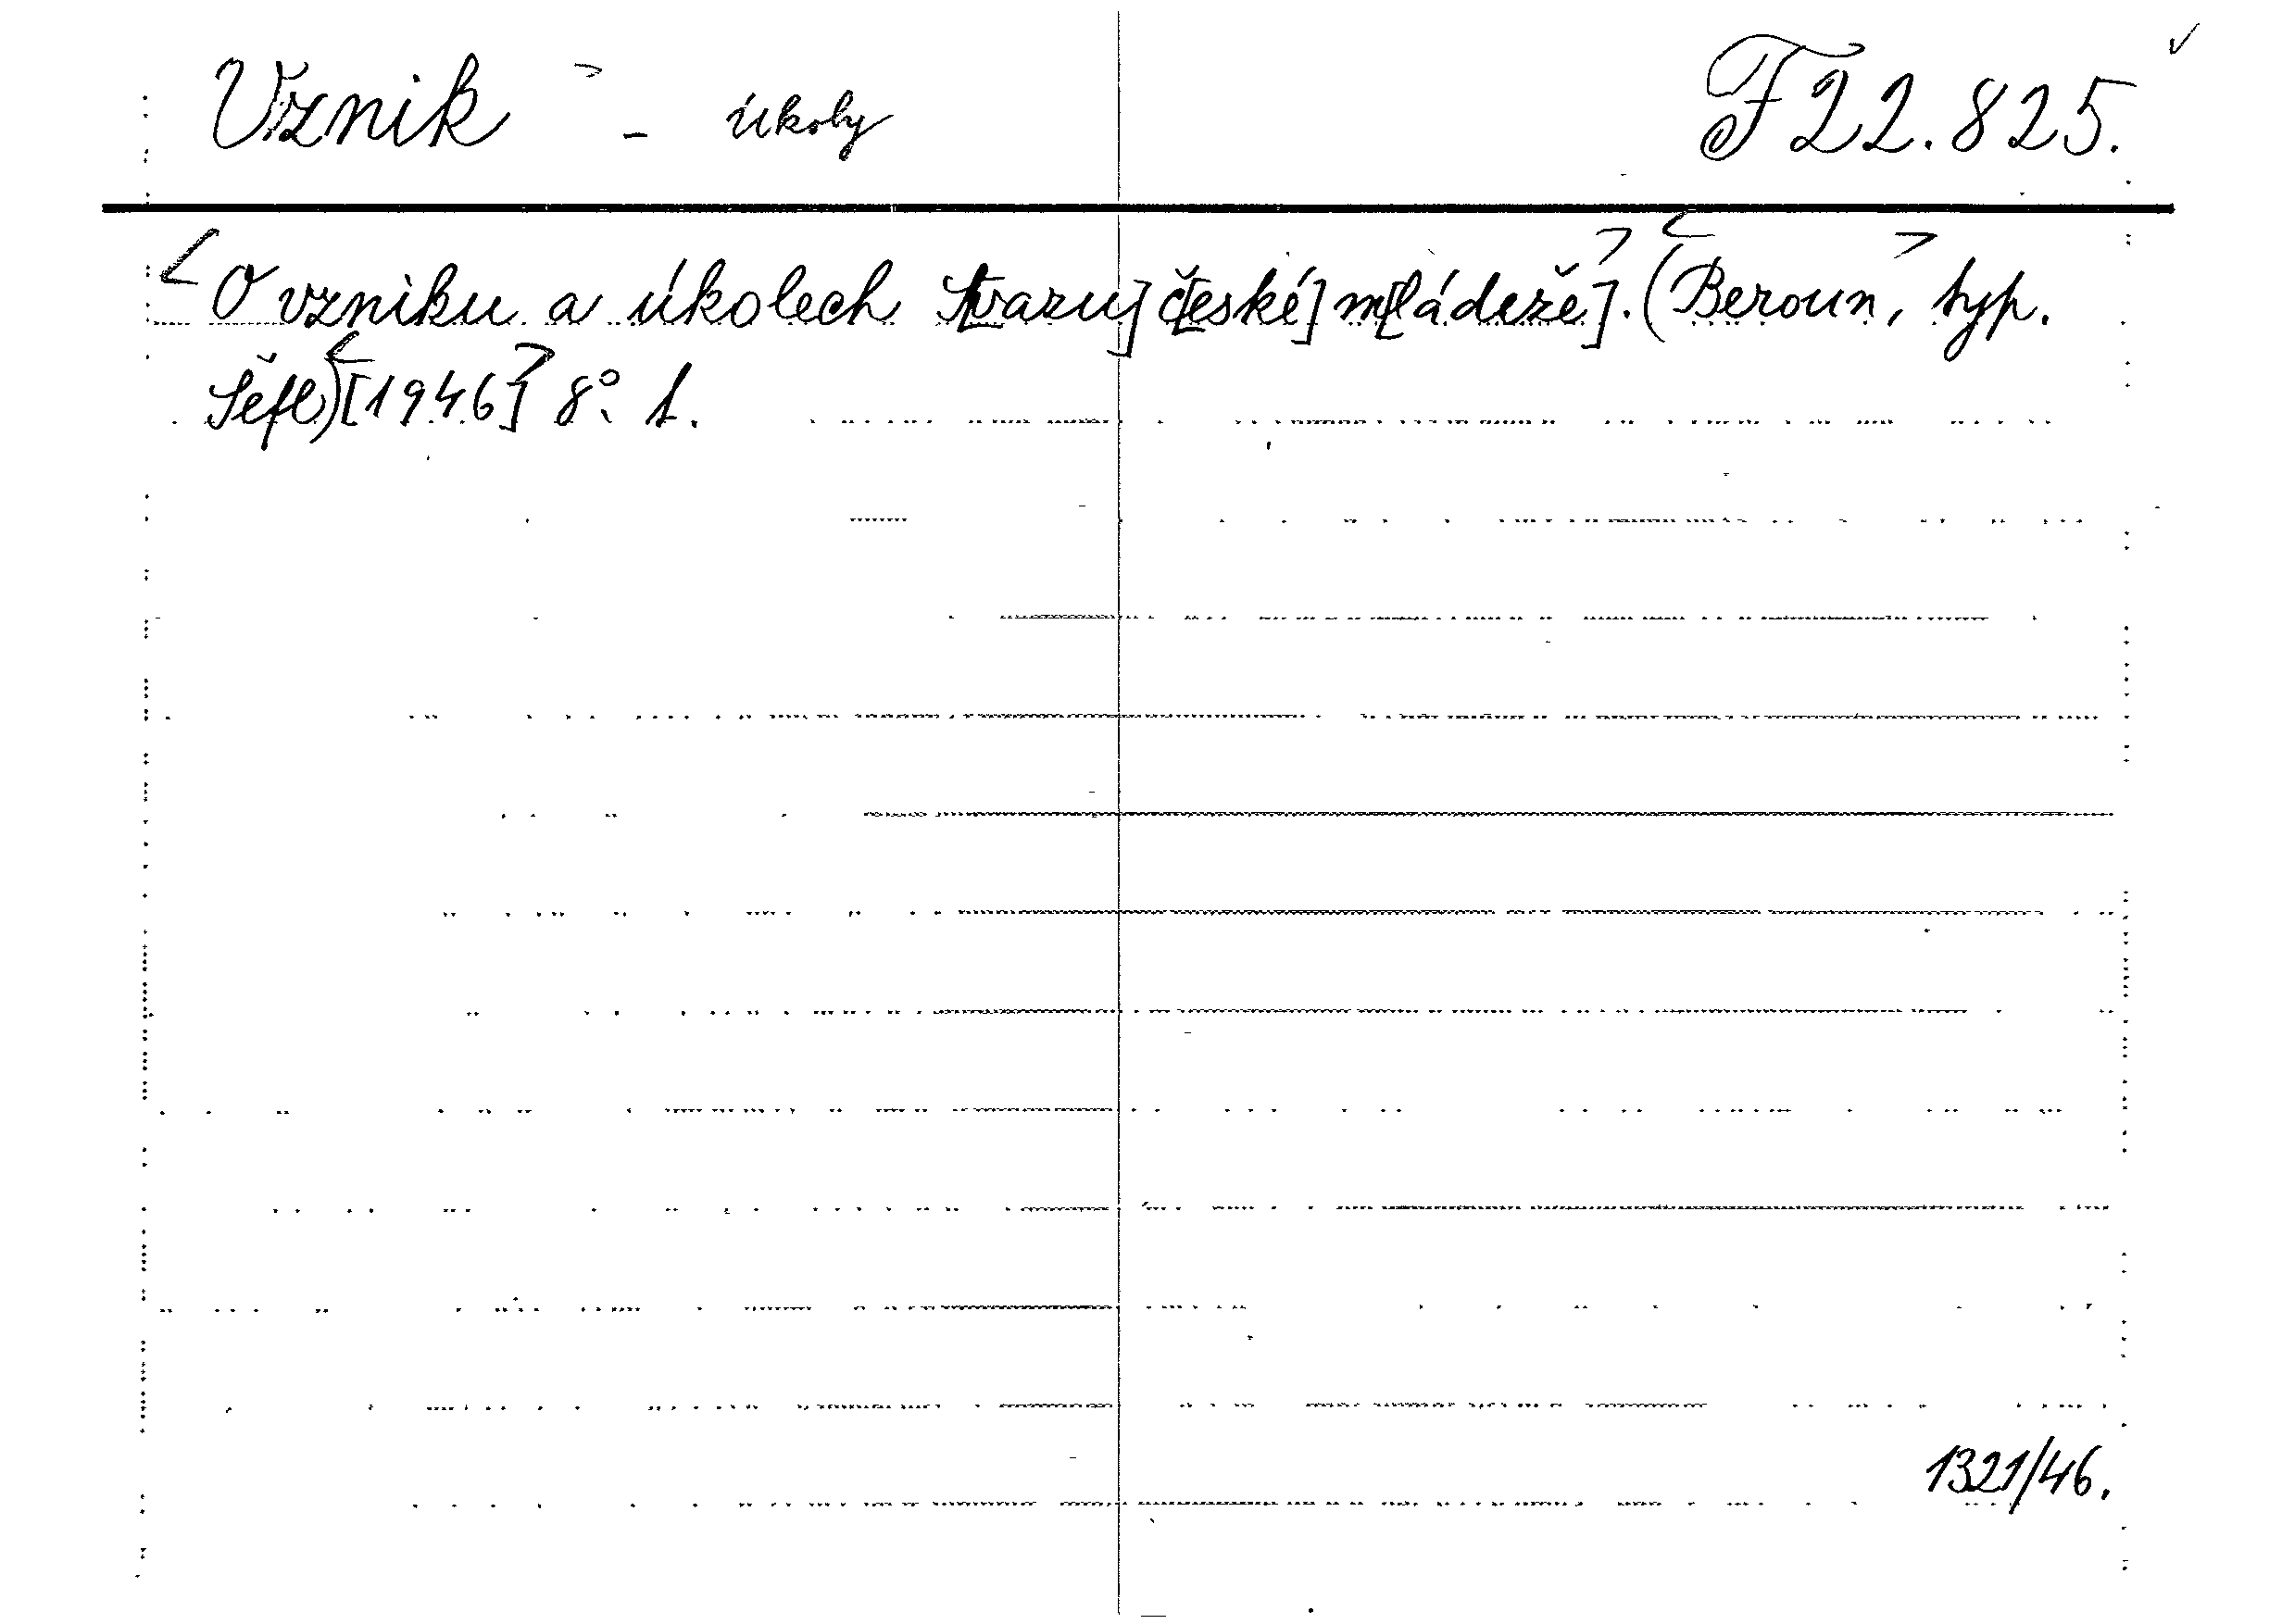 Vznik - úkoly F 22.825.
O vzniku a úkolech S[vazu] č[eské] ml[ádeže]. (Beroun, typ.
Šefl) [1946] 8°. 1.
1321/46.